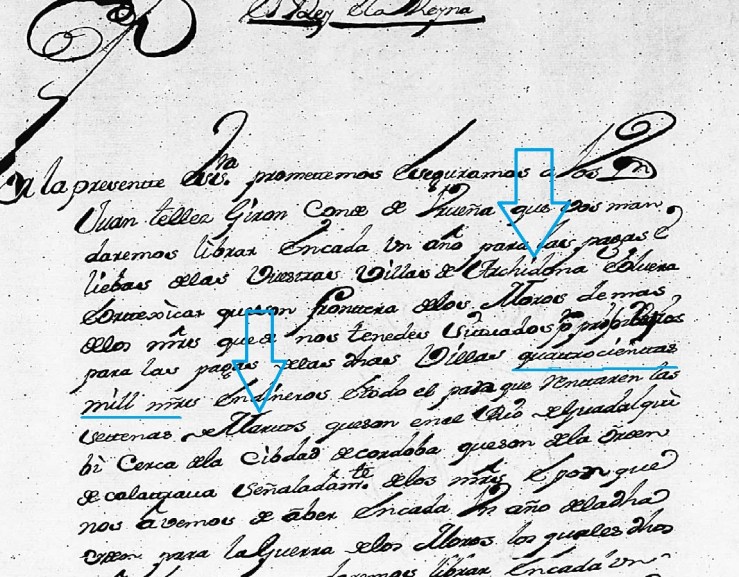 El Rey e la Reyna
Por la presente prometemos e seguramos a vos Dn
Juan tellez Giron Conde de Urueña que vos man
daremos librar en cada un año para las pagas e
liebas de las vuestras villas de Archidona e Olvera
e ortexicar que son frontera de los Moros de mas
de los mrs que de nos tenedes situados
para las pagas de las dhas villas quatrocientas
mill mrs en dineros e todo el pan que rentaren las
terzenas de Martos que son en el Rio de Guadalqui
bi Cerca de la Cibdad de cordoba que son de la orden
de calatrava Señaladamte de los mrs e pan que
nos avemos de aber en cada un año de la dha
orden para la Guerra de los Moros los quales dhos
daremos librar en cada un